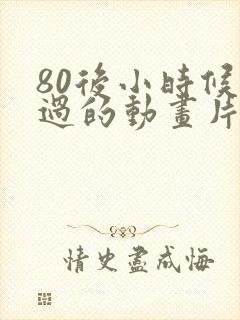 80後小時候
過的動畫片
情史盡成悔